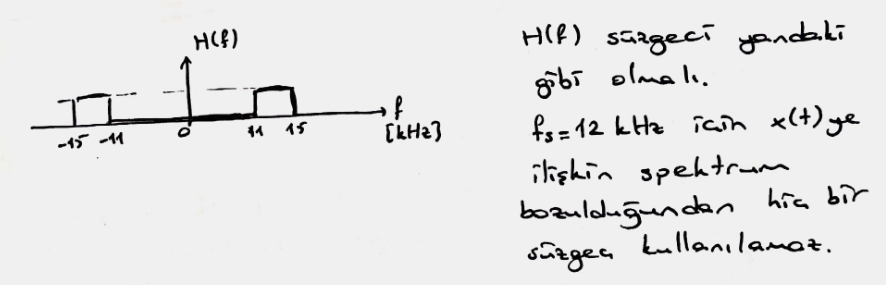 H(f)
f
[kHz]
-15 -11 0 11 15
H(f) süzgeci yandaki
gibi olmalı.
fs=12 kHz için x(t)ye
ilişkin spektrum
bozulduğundan hiç bir
süzgeç kullanılamaz.